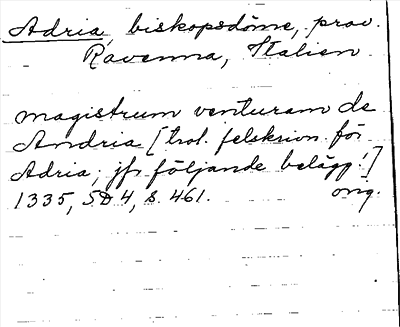 Adria, biskopsdöme, prov.
Ravenna, Italien
magistrum venturam de
Andria [trol. felskrivn. för
Adria; jfr följande belägg!]
1335, SD 4, s. 461. orig.